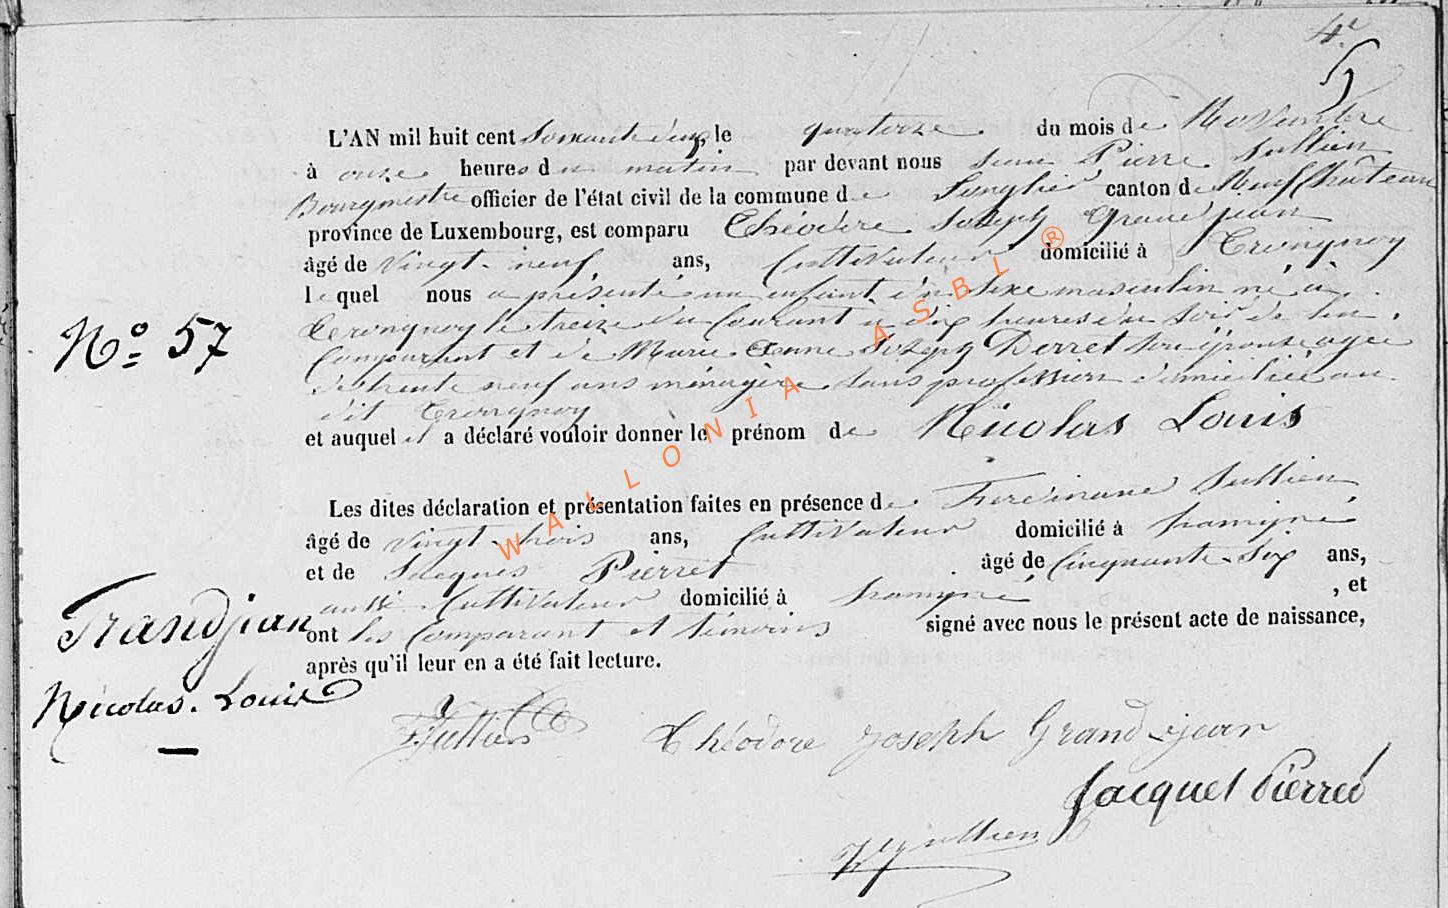 4e
5
L'AN mil huit cent soixante deux, le quatorze du mois de Novembre
à onze heures du matin par devant nous Jean Pierre Jullien
Bourgmestre officier de l'état civil de la commune de Longlier canton de Neufchâteau
province de Luxembourg, est comparu Théodore Joseph Grandjean
âgé de vingt-neuf ans, Cultivateur domicilié à Tronquoy
lequel nous a présenté un enfant du sexe masculin né à
Tronquoy le treize du Courant à dix heures du soir de lui
Comparant et de Marie Anne Joseph Derret son épouse agée
de trente neuf ans ménagère sans profession domiciliée au
dit Tronquoy
et auquel il a déclaré vouloir donner le prénom de Nicolas Louis
Les dites déclaration et présentation faites en présence de Ferdinand Jullien
âgé de vingt-trois ans, Cultivateur domicilié à hamipré
et de Jacques Pierret âgé de Cinquante-Six ans,
aussi Cultivateur domicilié à hamipré, et
ont les Comparant et témoins signé avec nous le présent acte de naissance,
après qu'il leur en a été fait lecture.
No 57
Grandjean
Nicolas. Louis
FJullien Théodore Joseph Grand-jean
Jacques Pierret
Jullien
WALLONIA ASBL ®